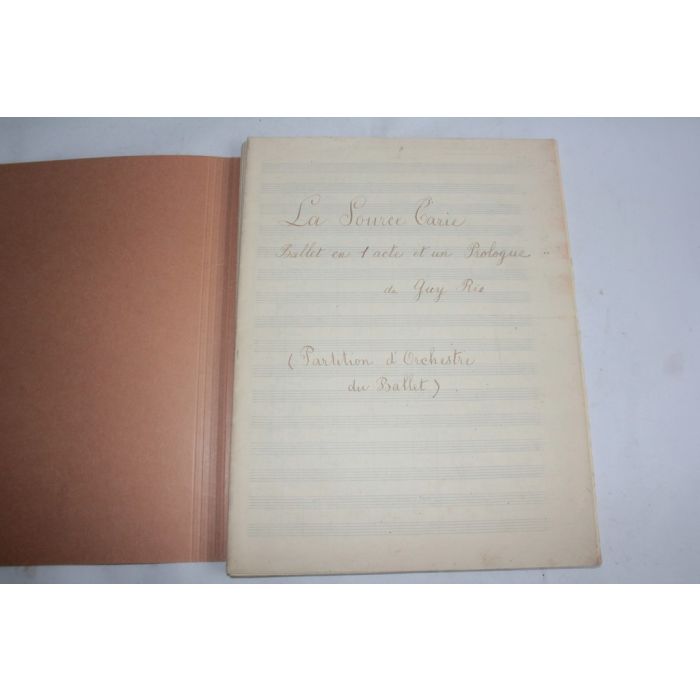 La Source Tarie
Ballet en 1 acte et un Prologue
de Guy Ris
(Partition d'Orchestre
du Ballet)